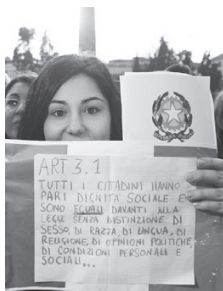 ART 3.1
TUTTI I CITTADINI HANNO
PARI DIGNITÀ SOCIALE E
SONO EGUALI DAVANTI ALLA
LEGGE SENZA DISTINZIONE DI
SESSO, DI RAZZA, DI LINGUA, DI
RELIGIONE, DI OPINIONI POLITICHE,
DI CONDIZIONI PERSONALI E
SOCIALI...